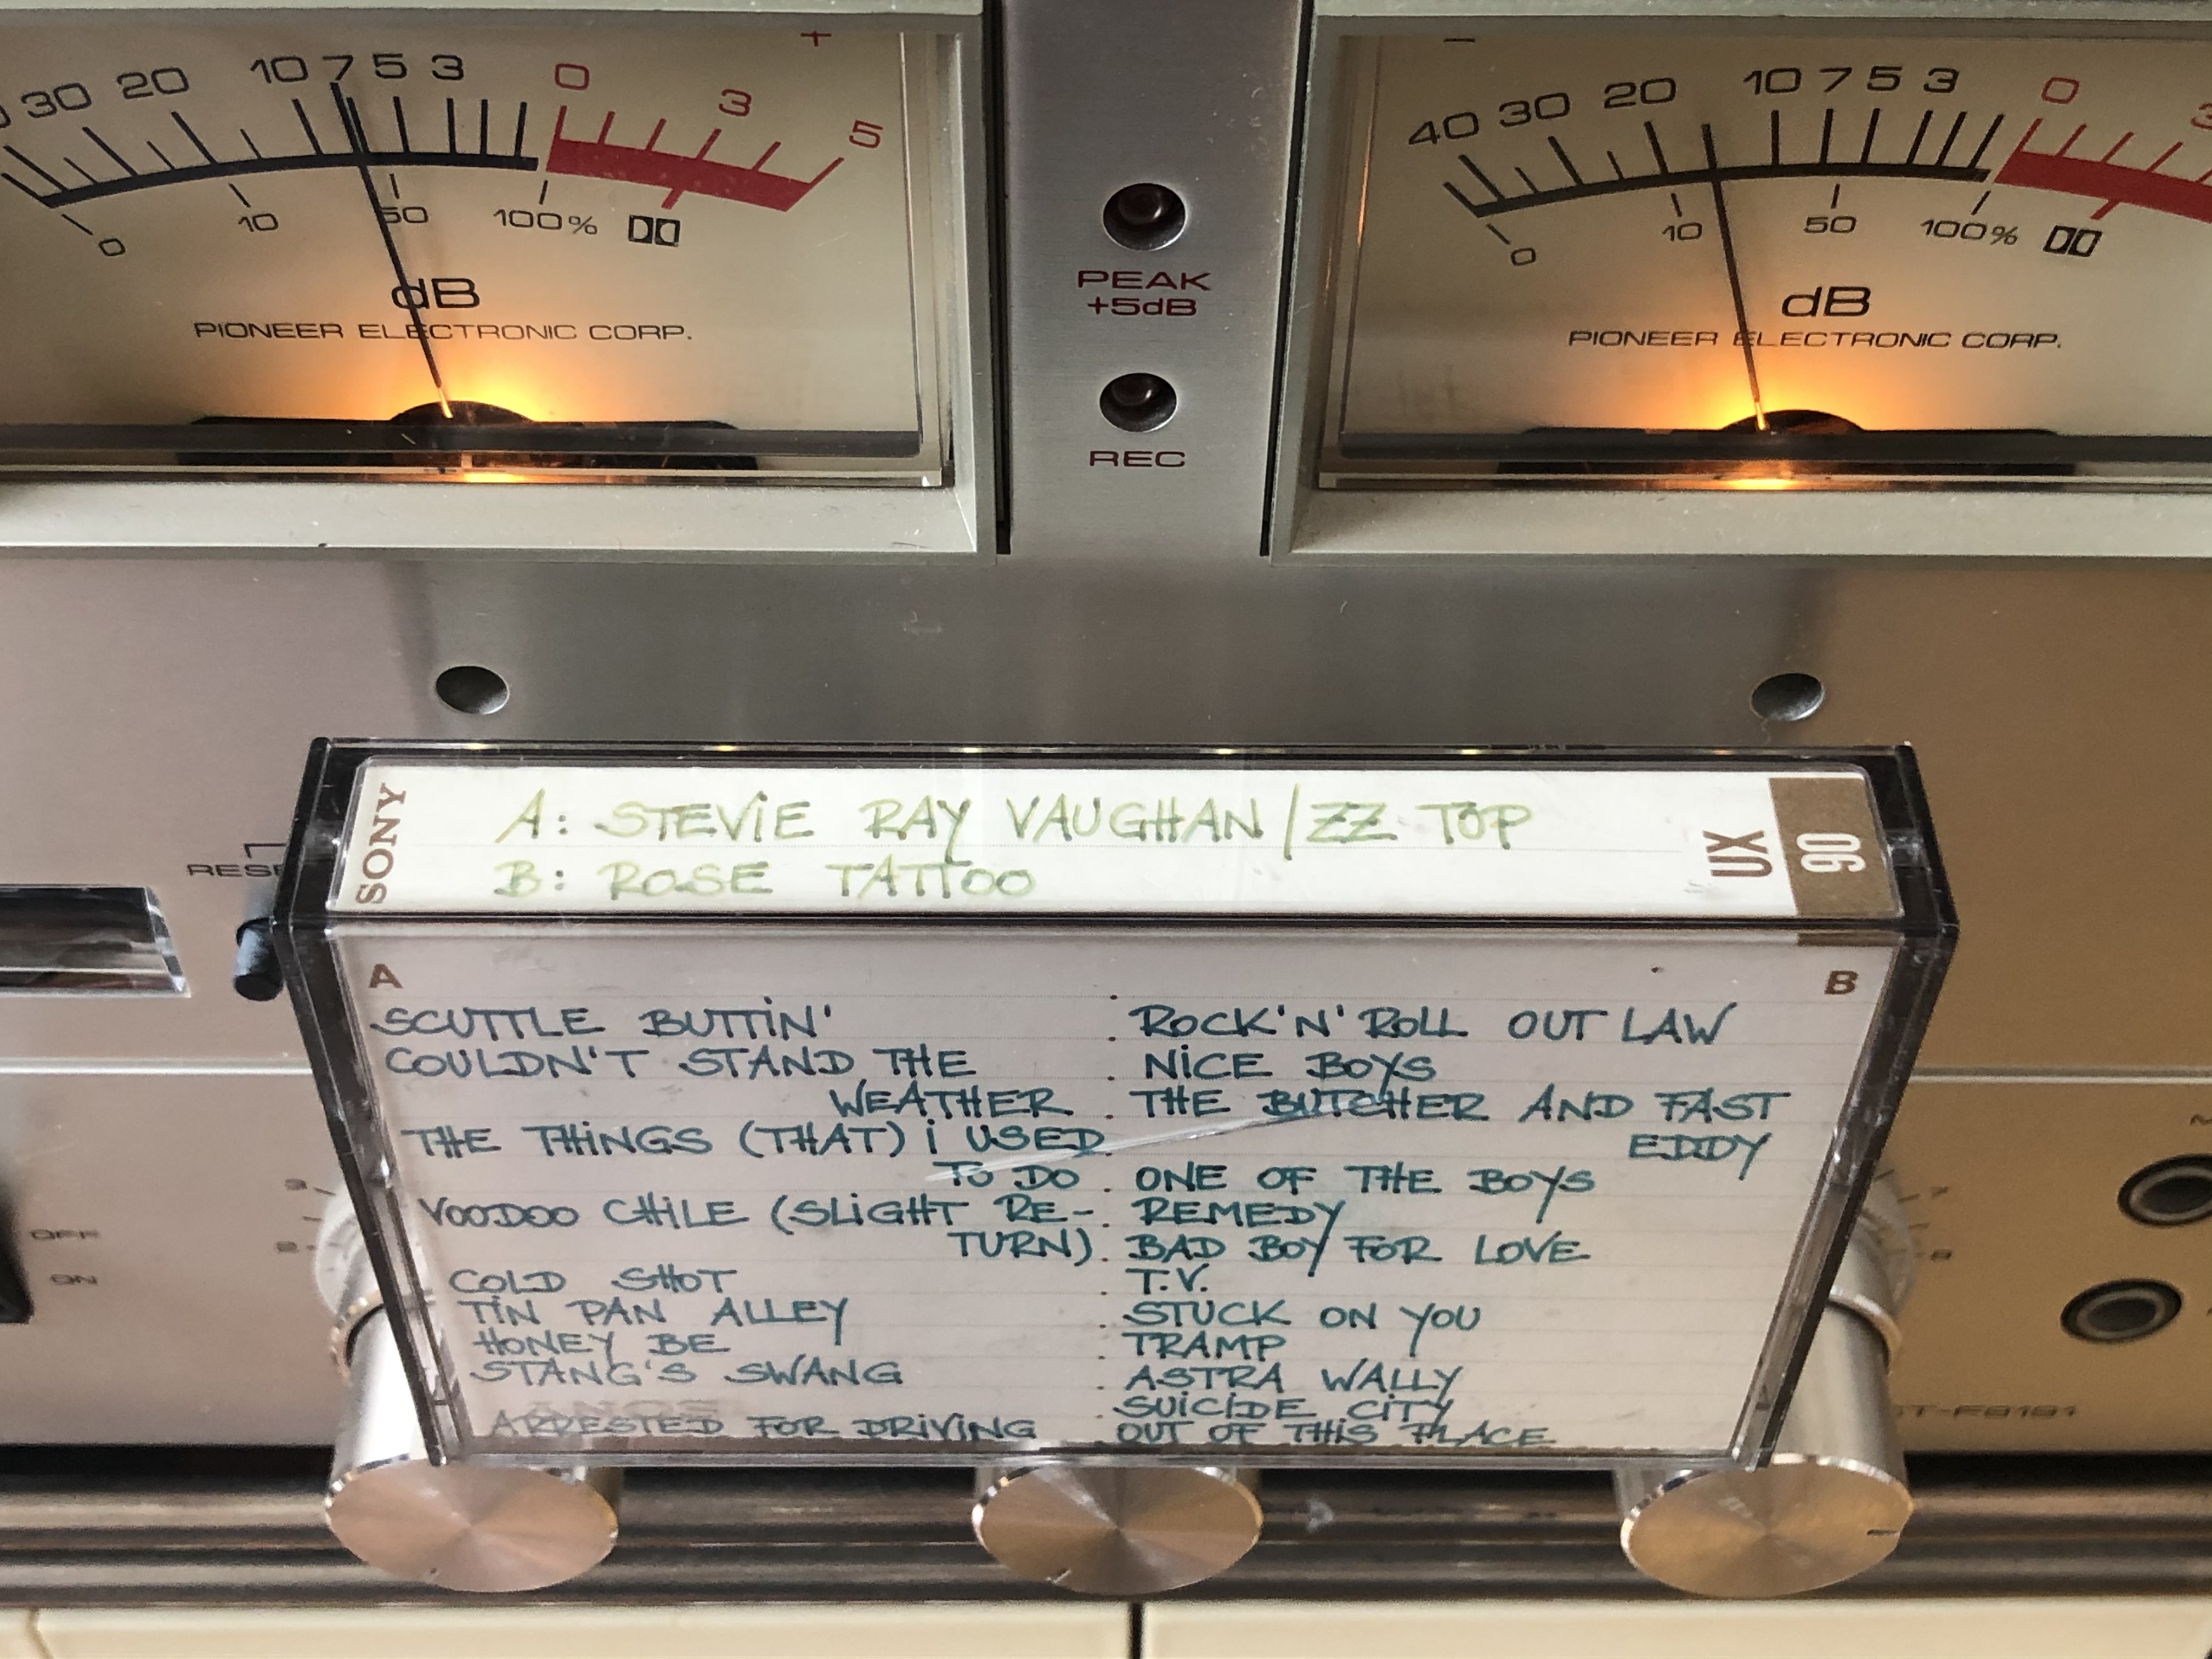 +
30 20 10 7 5 3 0 3 5
0 10 50 100%
dB
PIONEER ELECTRONIC CORP.
PEAK
+5dB
REC
–
40 30 20 10 7 5 3 0 3
0 10 50 100%
dB
PIONEER ELECTRONIC CORP.
SONY
A: STEViE RAY VAUGHAN/ZZ TOP
B: ROSE TATTOO
UX
90
RESE
A
SCUTTLE BUTTiN'
COULDN'T STAND THE
WEATHER
THE THiNGS (THAT) i USED
TO DO
VOODOO CHiLE (SLiGHT RE-
TURN)
COLD SHOT
TiN PAN ALLEY
HONEY BE
STANG'S SWANG
ARRESTED FOR DRiViNG
B
. ROCK'N' ROLL OUT LAW
. NiCE BOYS
. THE BUTCHER AND FAST
EDDY
. ONE OF THE BOYS
. REMEDY
. BAD BOY FOR LOVE
. T.V.
. STUCK ON YOU
. TRAMP
. ASTRA WALLY
. SUiCiDE CiTY
OUT OF THiS PLACE
OFF
ON
3
2
7
8
M
CT-F9191